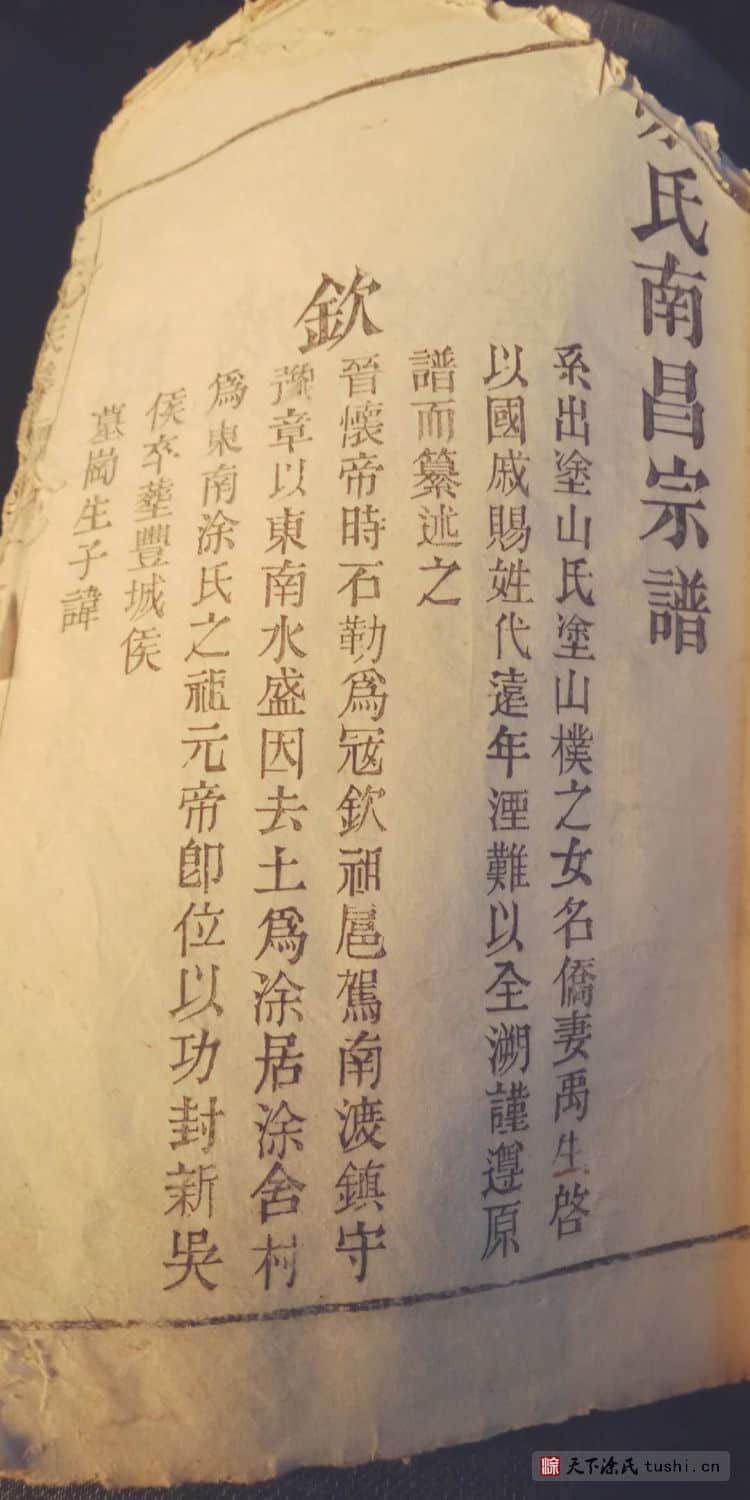 氏南昌宗譜
系出塗山氏塗山樸之女名僑妻禹生啓
以國戚賜姓代遠年湮難以全溯謹遵原
譜而纂述之
欽
晉懷帝時石勒爲冦欽祖扈駕南渡鎮守
豫章以東南水盛因去土爲涂居涂舍村
爲東南涂氏之祖元帝卽位以功封新吳
侯卒塟豐城侯
墓崗生子諱
天下涂氏 tushi.cn